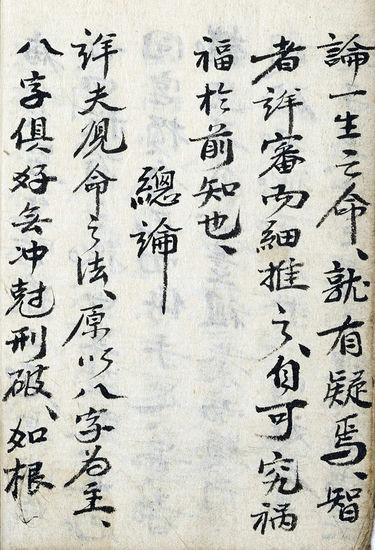 論一生之命、就有疑焉、智
者詳審而細推之、自可究禍
福於前知也、
總論
詳夫观命之法、原以八字為主、
八字俱好無冲尅刑破、如根